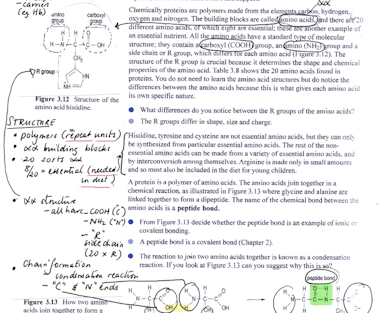 - carrier
(eg Hb)
amino group
carboxyl group
H
O
H — N — C — C
H
OH
CH₂
R group
N
NH
Figure 3.12 Structure of the
amino acid histidine.
αα
Chemically proteins are made from the elements carbon, hydrogen,
oxygen and nitrogen. The building blocks are called amino acids and there are 20
different amino acids, of which eight are essential; these are another example of
an essential nutrient. All the amino acids have a standard type of molecular
structure; they contain a carboxyl (COOH) group, an amino (NH₂) group and a
side chain or R group, which differs for each amino acid (Figure 3.12). The
structure of the R group is crucial because it determines the shape and chemical
properties of the amino acid. Table 3.8 shows the 20 amino acids found in
proteins. You do not need to learn the amino acid structures but do notice the
differences between the amino acids because this is what gives each amino acid
its own specific nature.
What differences do you notice between the R groups of the amino acids?
The R groups differ in shape, size and charge.
STRUCTURE
• polymers (repeat units)
• αα building blocks
• 20 sorts αα
8/20 = essential (needed
in diet)
Histidine, tyrosine and cysteine are not essential amino acids, but they can only
be synthesized from particular essential amino acids. The rest of the non-
essential amino acids can be made from a variety of essential amino acids, and
by interconversion among themselves. Arginine is made only in small amounts
and so must also be included in the diet for young children.
• αα structure
- all have - COOH ("C")
- NH₂ ("N")
- "R"
side chain
(20 x R)
A protein is a polymer of amino acids. The amino acids join together in a
chemical reaction, as illustrated in Figure 3.13 where glycine and alanine are
linked together to form a dipeptide. The name of the chemical bond between the
amino acids is a peptide bond.
From Figure 3.13 decide whether the peptide bond is an example of ionic or
covalent bonding.
A peptide bond is a covalent bond (Chapter 2).
The reaction to join two amino acids together is known as a condensation
reaction. If you look at Figure 3.13 can you suggest why this is so?
• Chain formation
condensation reaction
- "C" & "N" ends
peptide bond
Figure 3.13 How two amino
acids join together to form a